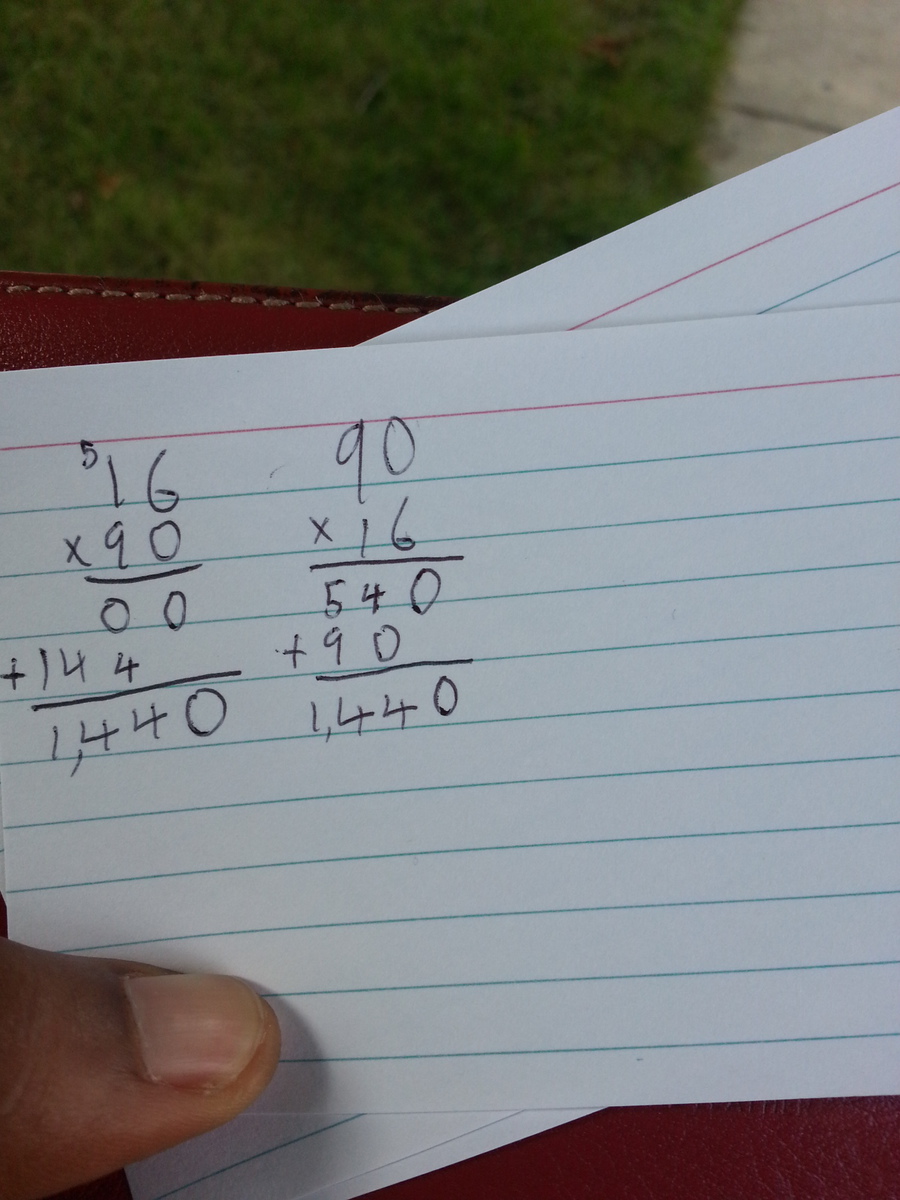 5
16
x90
00
+144
1,440
90
x16
540
+90
1,440